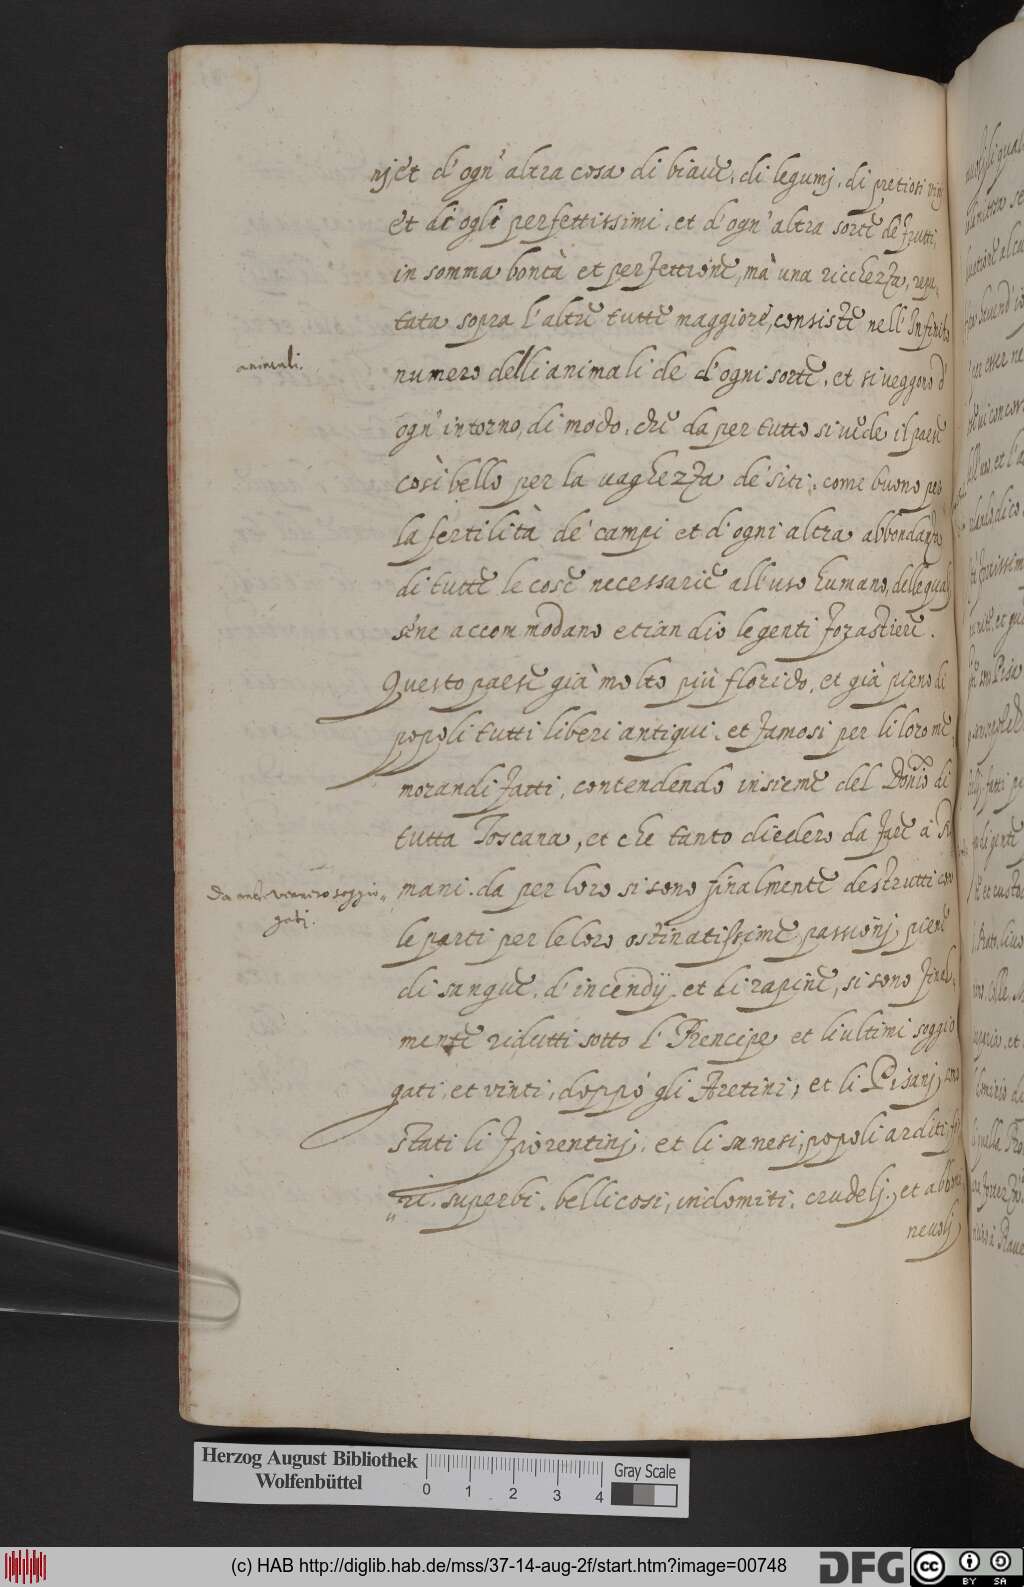 nj et d'ogn'altra cosa di biaue, di legumj, di pretiosi vinj
et di ogli perfettissimi, et d'ogn'altra sorte de frutti,
in somma bontà et perfettione, mà una riccherza, repu,
tata sopra l'altre tutte maggiore, consiste nell'Infinito
animali.
numero delli animali de d'ogni sorte, et si veggono d'
ogn'intorno, di modo, che da per tutto si uede il paese
così bello per la vaghezza de' siti, come buono per
la fertilità de' campi et d'ogni altra abbondanza
di tutte le cose necessarie all'uso humano, delle quali
sene accommodano etiandio le genti forastiere.
Questo paese già molto più florido, et già pieno di
popoli tutti liberi antiqui, et famosi per li loro me
morandi fatti, contendendo insieme del Donio di
tutta Toscana, et che tanto diedero da fare à Ro
mani, da per loro si sono finalmente destrutti con
Da venero soggio„
gatj.
le parti per le loro ostinatissime passionj, piene
di sangue, d'incendij, et di rapine, si sono final,
mente ridutti sotto l'Prencipe et li ultimi soggio
gati, et vinti, doppò gli Aretini, et li Pisanj, sono
stati li Fiorentinj, et li sanesi, popoli arditi, fie
„ri, superbi, bellicosi, indomiti, crudelj, et abbomi
nevolj
Herzog August Bibliothek
Wolfenbüttel
0 1 2 3 4
Gray Scale
(c) HAB http://diglib.hab.de/mss/37-14-aug-2f/start.htm?image=00748
DFG
cc BY SA